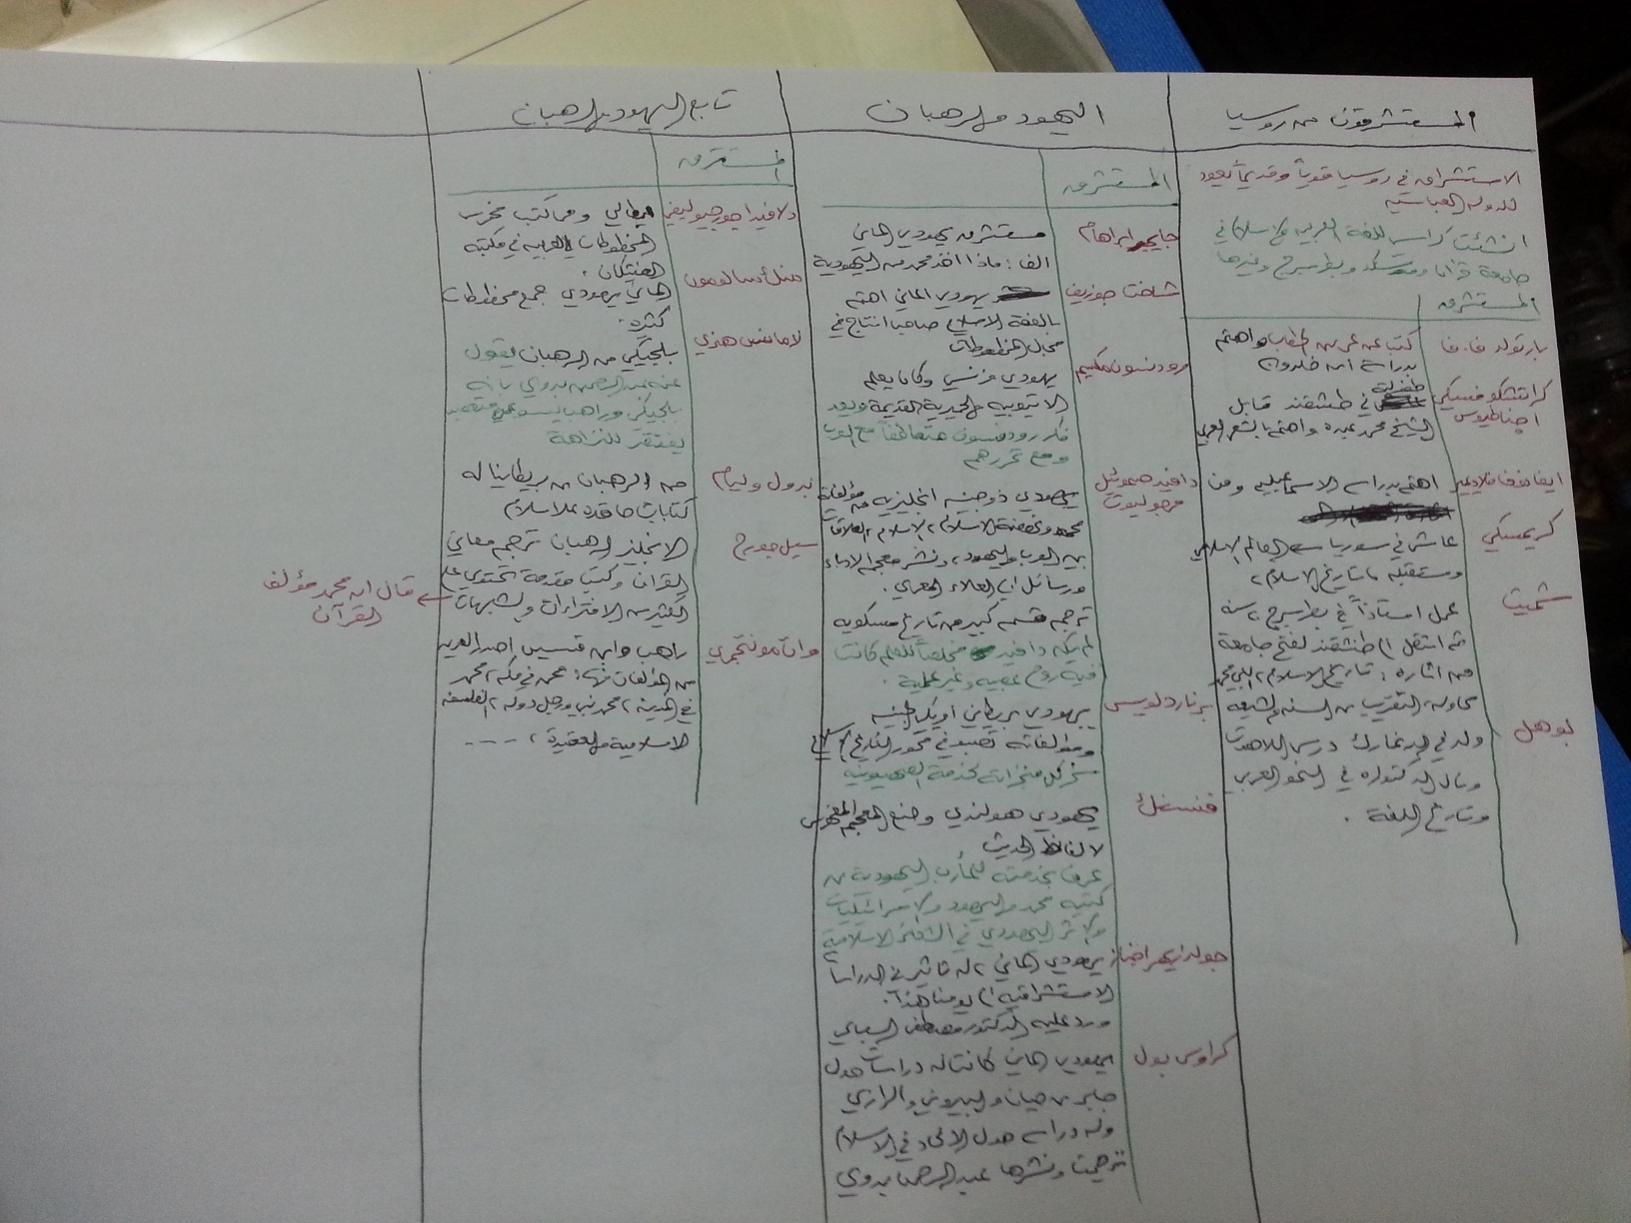 المستشرقون من روسيا
الاستشراق في روسيا قوياً وقديماً يعود
للدولة العباسية
انشئت كراسي للغة العربية والاسلام في
جامعة قزان وموسكو وبطرسبرج وغيرها
المستشرق
بارتولد ف.ف
كتب عن عمر بن الخطاب واهتم
بدراسة ابن خلدون
كراتشكوفسكي
اجناطيوس
طفولته
في طشقند قابل
الشيخ محمد عبده واهتم بالشعر العربي
ايفانوف فلاديمير
اهتم بدراسة الاسماعيلية ومن
كريمسكي
عاش في سوريا العالم الاسلامي
ومستقبله ، تاريخ الاسلام ،
شميت
عمل استاذاً في بطرسبرج ،
ثم انتقل الى طشقند لفتح جامعة
من اثاره : تاريخ الاسلام ، النبي محمد
محاولة التقريب بين السنة والشيعة
بوهل
ولد في الدنمارك درس اللاهوت
ونال الدكتوراه في النحو العربي
وتاريخ اللغة .
اليهود والرهبان
المستشرق
جايجر ابراهام
مستشرق يهودي الماني
الف : ماذا اخذ محمد من اليهودية
شاخت جوزيف
يهودي الماني اهتم
بالفقه الاسلامي صاحب انتاج في
مجال المخطوطات
رودنسون مكسيم
يهودي فرنسي وكان يعلم
الاثيوبية والحميرية القديمة ويعد
فكر رودنسون متعاطفاً مع العرب
ومع تحررهم
دافيد صموئيل
مرجوليوث
يهودي ذو جنسية انجليزية من مؤلفاته
محمد ونهضة الاسلام ، الاسلام ، العلاقات
بين العرب واليهود ، ونشر معجم الادباء
ورسائل ابي العلاء المعري .
ترجم قسم كبير من تاريخ مسكويه
لم يكن دافيد مخلصاً للعلم كانت
فيه روح عصبية وغير علمية .
برنارد لويس
يهودي بريطاني امريكي الجنسية
ومؤلفاته تصب في محور التاريخ الاسلامي
سخر كل منجزاته لخدمة الصهيونية
فنسنك
يهودي هولندي وضع المعجم المفهرس
لالفاظ الحديث
عرف بخدمته للمآرب اليهودية من
كتبه محمد واليهود والاسرائيليات
والاثر اليهودي في الشعائر الاسلامية
جولدزيهر اجناز
يهودي الماني ، له تاثير في الدراسات
الاستشراقية الى يومنا هذا .
ورد عليه الدكتور مصطفى السباعي
كراوس بول
يهودي الماني كانت له دراسات حول
جابر بن حيان والبيروني والرازي
وله دراسة حول الالحاد في الاسلام
ترجمها ونشرها عبد الرحمن بدوي
تابع اليهود والرهبان
المستشرق
دلافيدا جورجيو ليفي
ايطالي ومن كتبه فهرس
المخطوطات العربية في مكتبة
الفتيكان .
منك سالومون
الماني يهودي جمع مخطوطات
كثيرة .
لامانس هنري
بلجيكي من الرهبان يقول
عنه عبد الرحمن بدوي بأنه
بلجيكي وراهب يسوعي متعصب
يفتقر للنزاهة
بدول وليام
من الرهبان من بريطانيا له
كتابات حاقدة على الاسلام
سيل جورج
الانجليز الرهبان ترجم معاني
القران وكتب مقدمة تحتوي على
الكثير من الافتراءات والشبهات
قال ان محمد مؤلف
القرآن
وات مونتجمري
راهب وابن قسيس اصدر العديد
من المؤلفات منها : محمد في مكة ، محمد
في المدينة ، محمد نبي ورجل دولة ، الفلسفة
الاسلامية والعقيدة ، ----